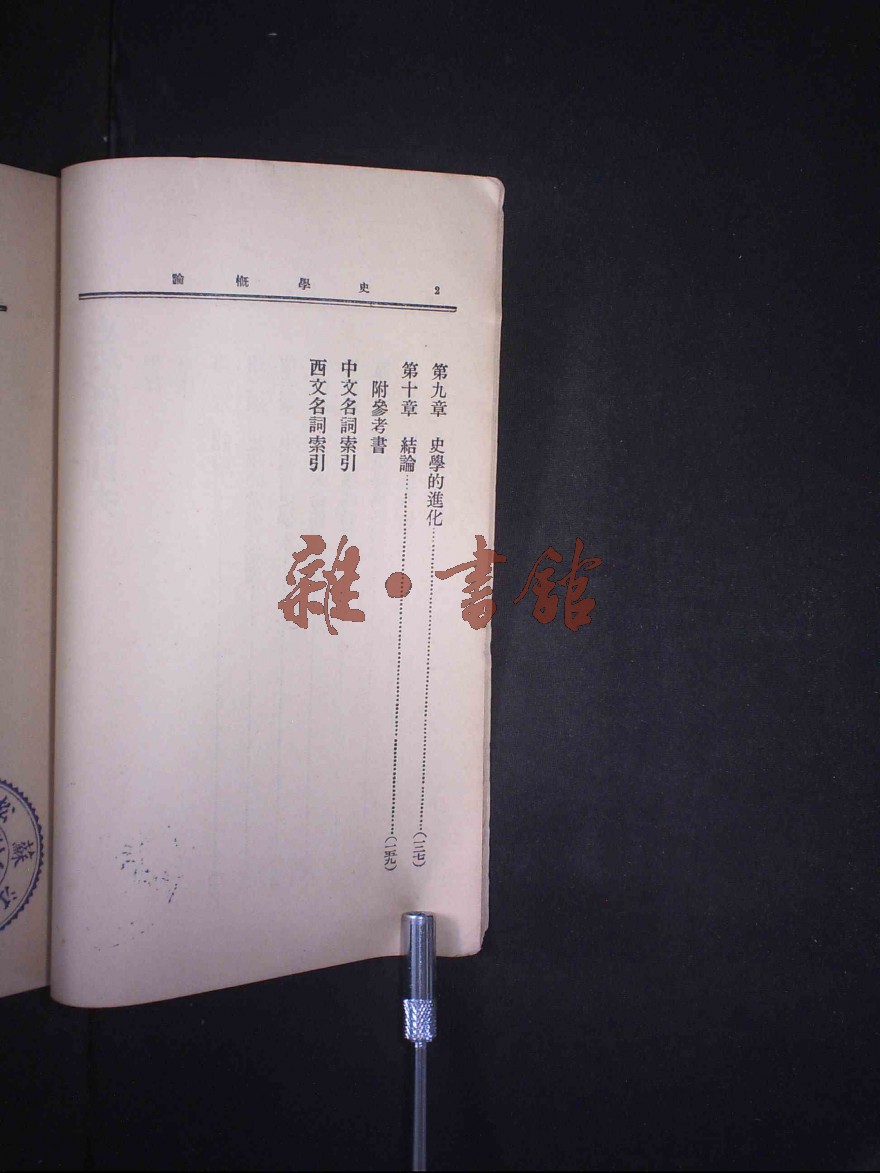 2 史學概論
第九章 史學的進化……(一二七)
第十章 結論……(一五九)
附參考書
中文名詞索引
西文名詞索引
雜·書舘
江蘇